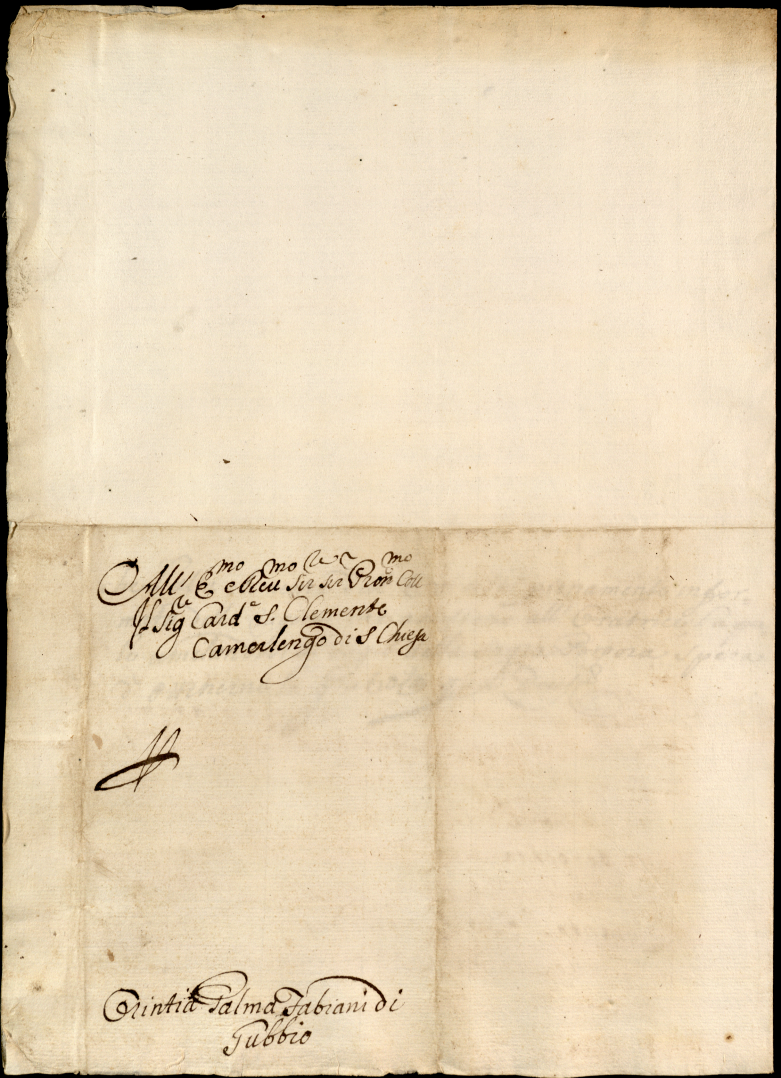 All' E.mo e Reu.mo Sig.re Sig.r Pron Coll.mo
Il Sig.re Card.e S. Clemente
Camerlengo di S Chiesa
Cintia Palma Fabiani di
Gubbio